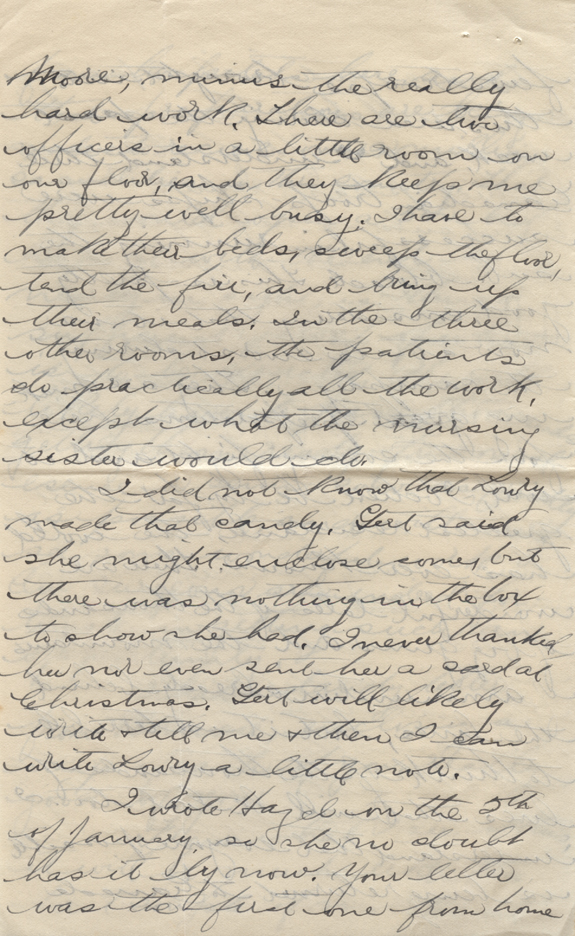 Moore, minus the really
hard work. There are two
officers in a little room on
our floor, and they keep me
pretty well busy. I have to
make their beds, sweep the floor,
tend the fire, and bring up
their meals. In the three
other rooms, the patients
do practically all the work,
except what the nursing
sister would do.
I did not know that Lowry
made that candy. Gert said
she might enclose some, but
there was nothing in the box
to show she had. I never thanked
her nor even sent her a card at
Christmas. Gert will likely
write & tell me & then I can
write Lowry a little note.
I wrote Hazel on the 5th
of January, so she no doubt
has it by now. Your letter
was the first one from home